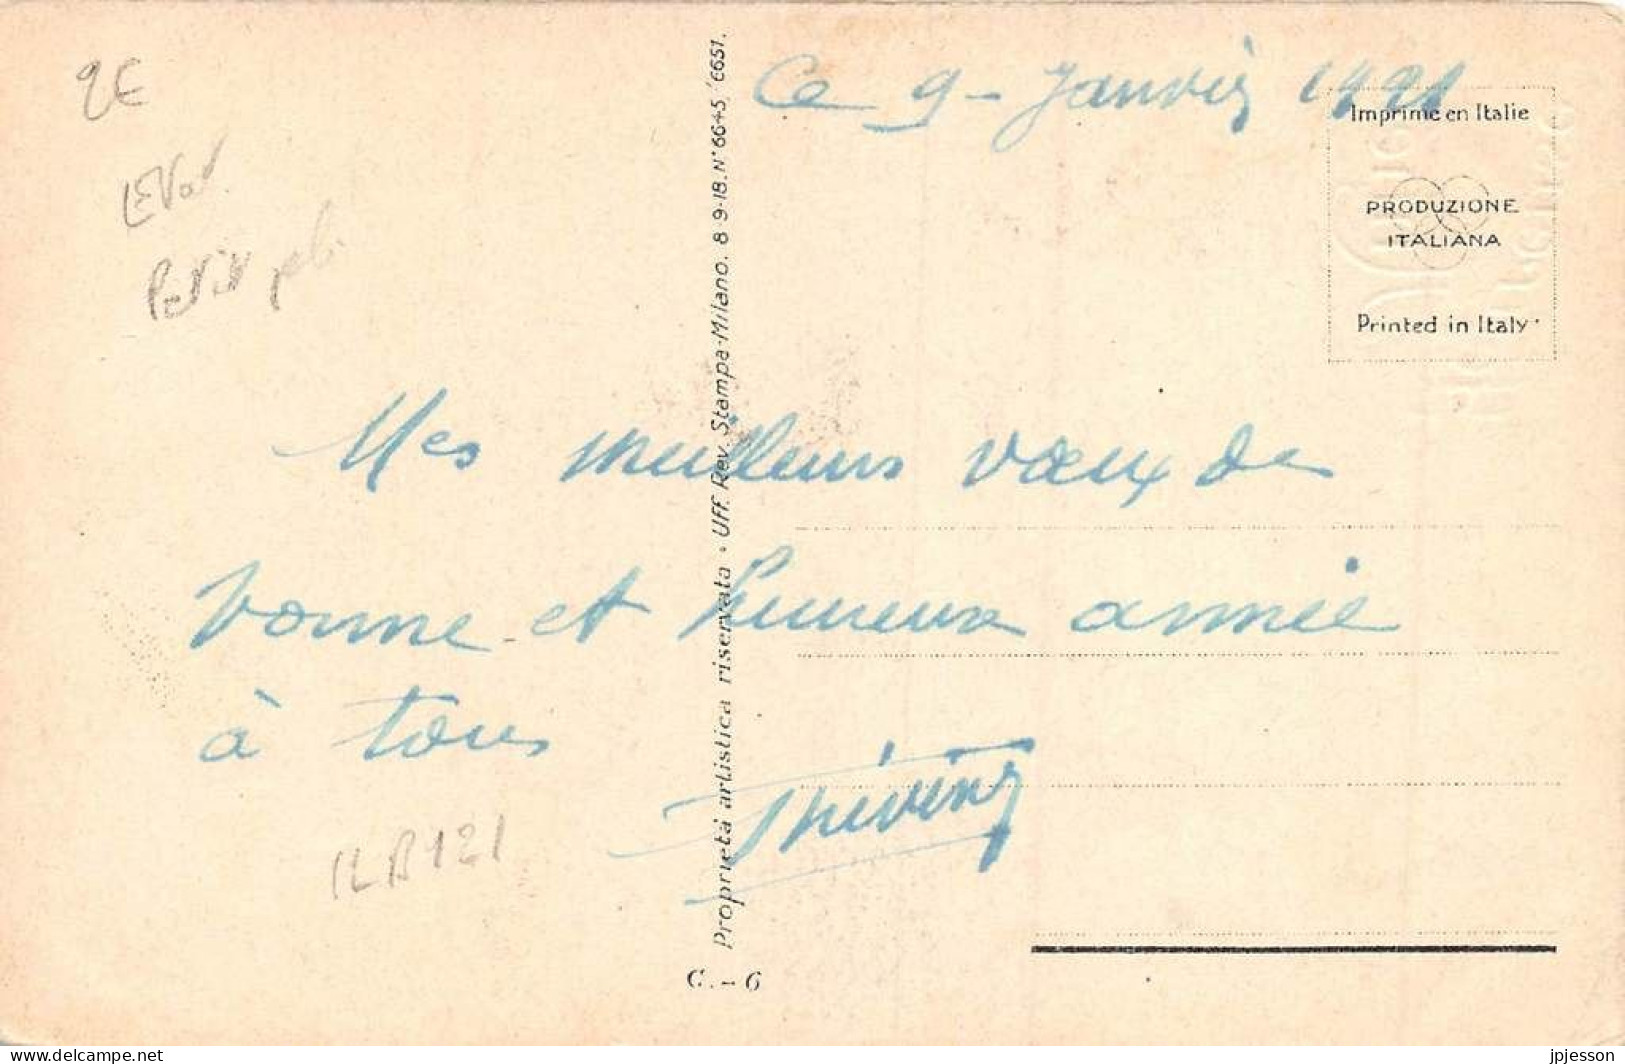 Ce 9 - Janvier 1921
Imprimé en Italie
PRODUZIONE
ITALIANA
Printed in Italy
Mes meilleurs vœux de
bonne et heureuse année
à tous
Proprietà artistica riservata • Uff. Rev. Stampa-Milano. 8 9-18. N° 6645, '6651.
C. - 6
© Delcampe.net
jpjesson